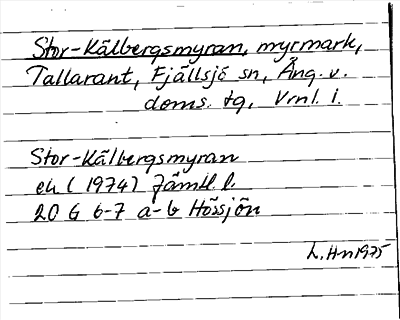 Stor-Kälbergsmyran, myrmark,
Tallarant, Fjällsjö sn, Ång. v.
doms. tg, Vrnl. l.
Stor-Kälbergsmyran
ek (1974) Jämtl. l.
20 G 6-7 a-b Hössjön
L. Hn 1975